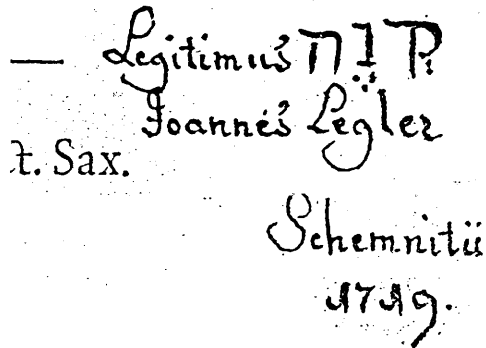 — Legitimus קנֶה
Joannes Legler
t. Sax.
Schemnitii
1719.